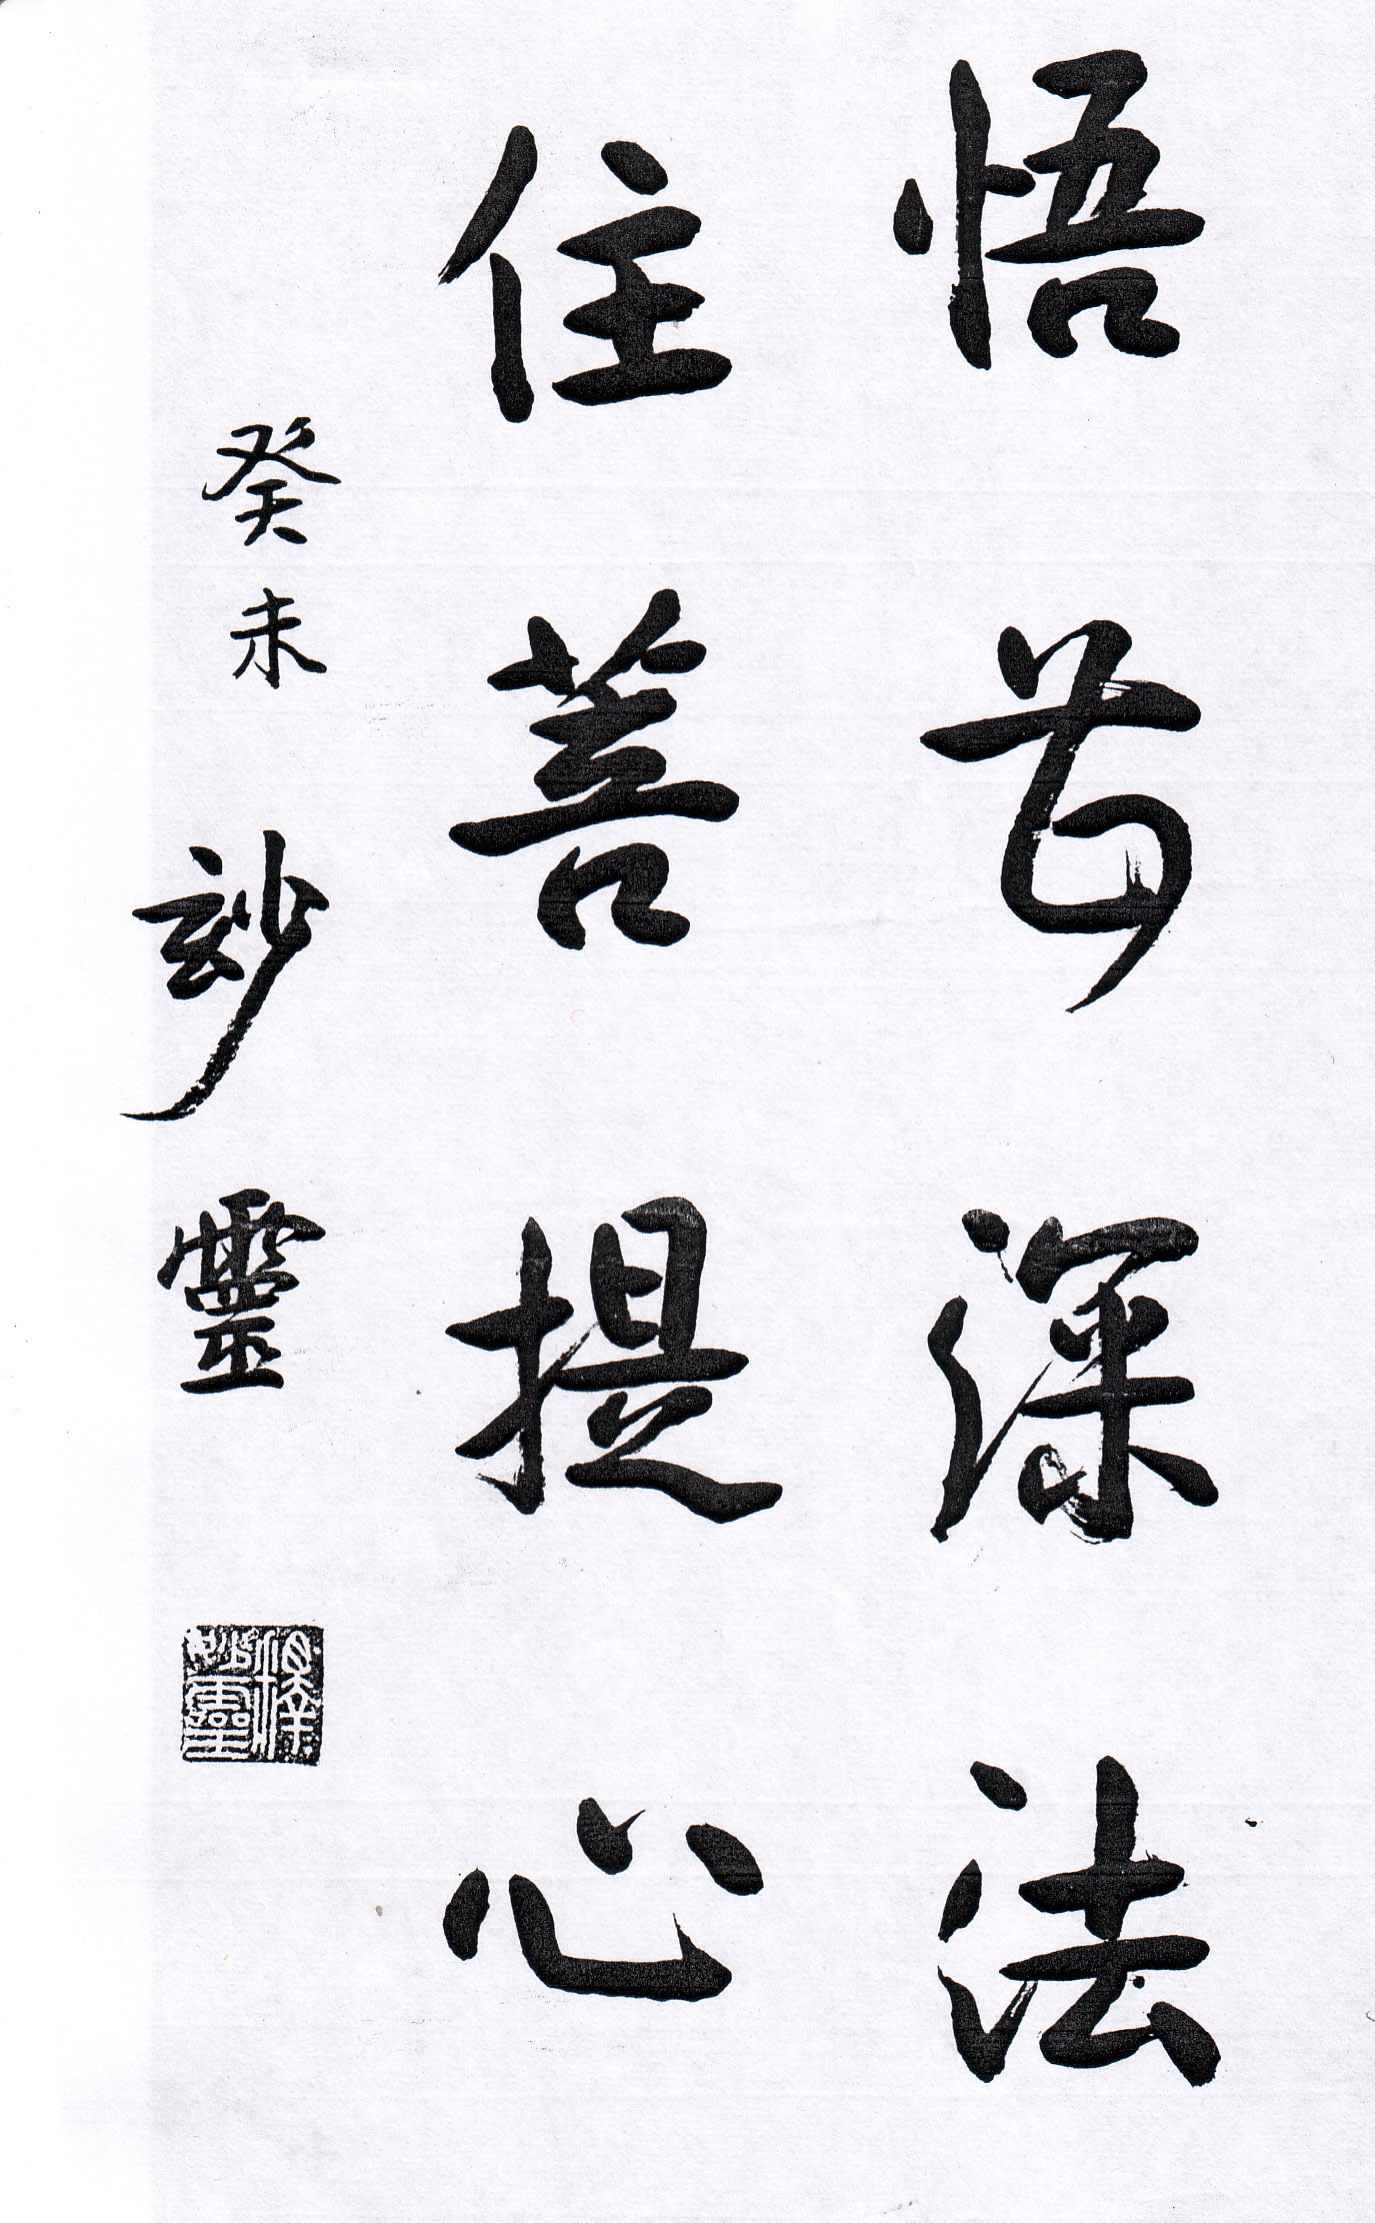 悟甚深法
住菩提心
癸未 玅靈